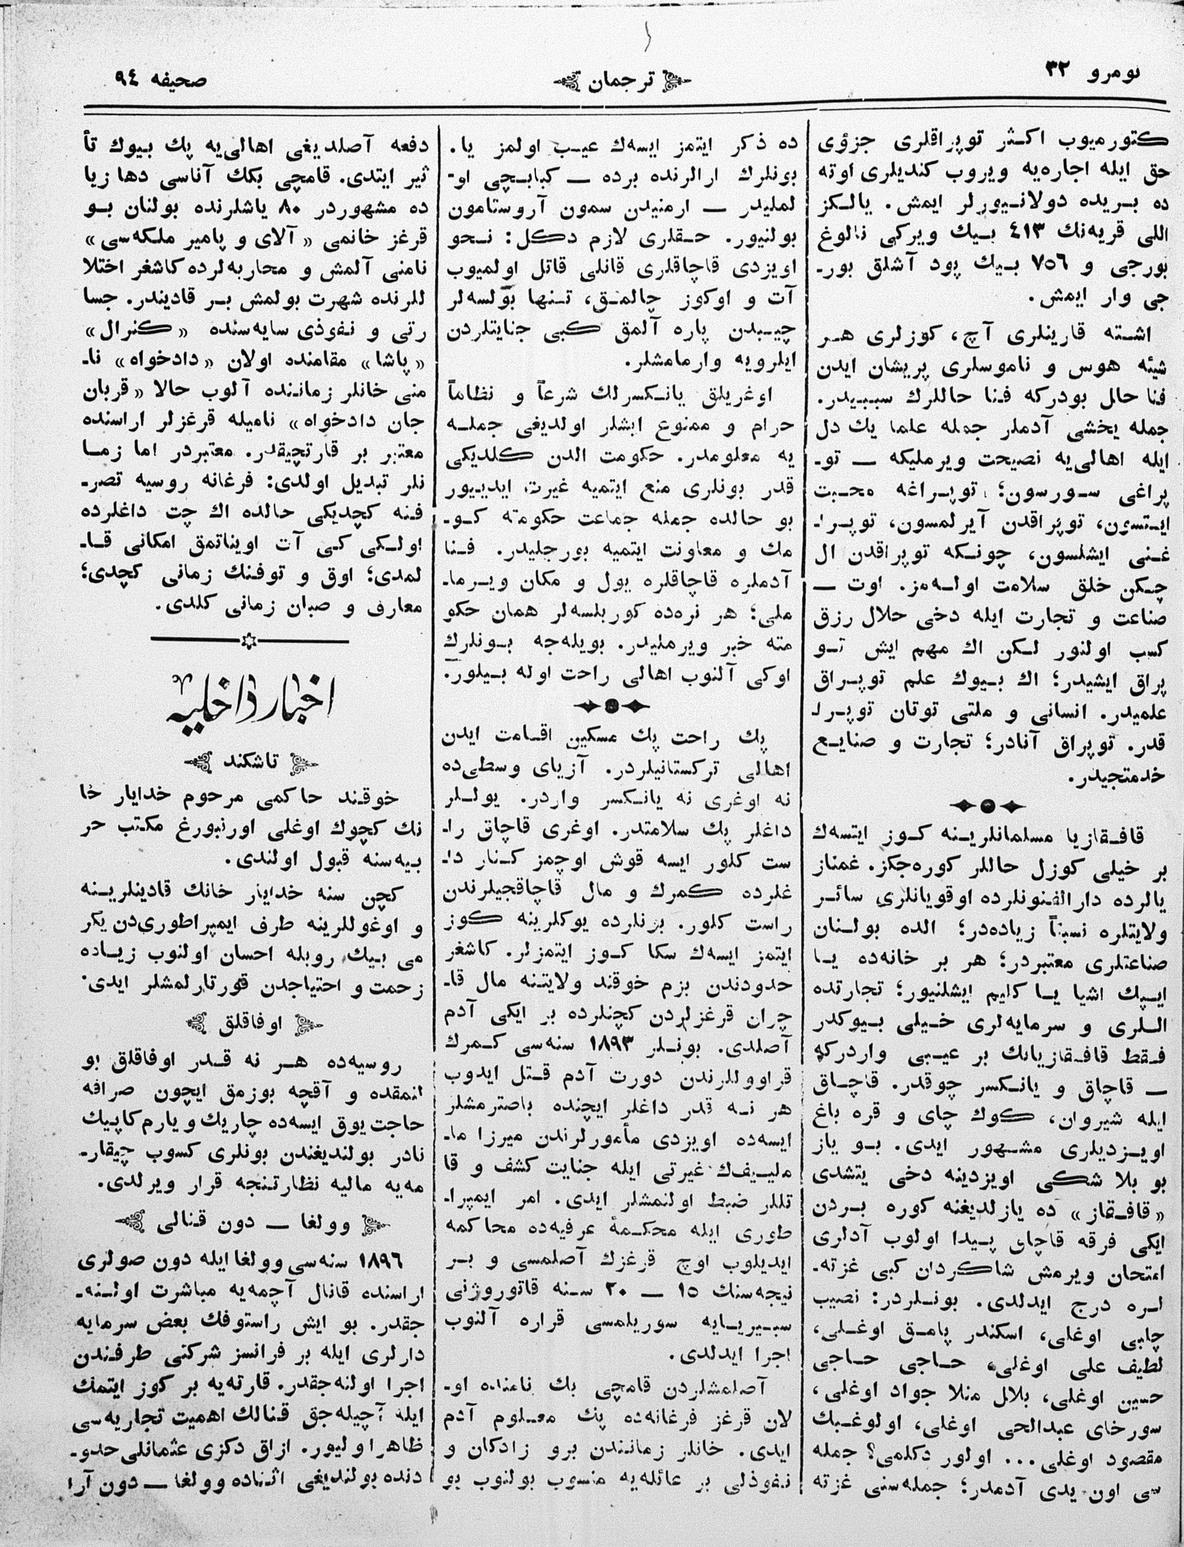 نومرو ٣٢
ترجمان
صحيفه ٩٤
كتورميوب اكثر توپراقلری جزؤی
حق ايله اجاره‌يه ويروب كنديلری اوته
ده بريده دولانيورلر ايمش. يالكز
اللی قريه‌نك ٤١٣ بيك ويركی نالوغ
بورجی و ٧٥٦ بيك پود آشلق بور-
جی وار ايمش.
اشته قارينلری آچ، كوزلری هر
شيئه هوس و ناموسلری پريشان ايدن
فنا حال بودركه فنا حاللرك سببيدر.
جمله يخشی آدملر جمله علما يك دل
ايله اهالی‌يه نصيحت ويرمليكه — تو-
پراغی سورسون؛ توپراغه محبت
ايتسون، توپراقدن آيرلمسون، توپرا-
غنی ايشلسون، چونكه توپراقدن ال
چكن خلق سلامت اوله‌مز. اوت —
صناعت و تجارت ايله دخی حلال رزق
كسب اولنور لكن اك مهم ايش تو
پراق ايشيدر؛ اك بيوك علم توپراق
علميدر. انسانی و ملتی توتان توپرا-
قدر. توپراق آنادر؛ تجارت و صنايع
خدمتجيدر.
قافقازيا مسلمانلرينه كوز ايتسه‌ك
بر خيلی كوزل حاللر كوره‌جكز. غمناز
يالرده دارالفنونلرده اوقويانلری سائر
ولايتلره نسبتاً زياده‌در؛ الده بولنان
صناعتلری معتبردر؛ هر بر خانه‌ده يا
ايپك اشيا يا كليم ايشلنيور؛ تجارتده
اللری و سرمايه‌لری خيلی بيوكدر
فقط قافقازيانك بر عيبی واردركه
— قاچاق و يانكسر چوقدر. قاچاق
ايله شيروان، كوك چای و قره باغ
اويزديلری مشهور ايدی. بو ياز
بو بلا شكی اويزدينه دخی يتشدی
«قافقاز» ده يازلديغنه كوره بردن
ايكی فرقه قاچاق پيدا اولوب آدلری
امتحان ويرمش شاكردان كبی غزته-
لره درج ايدلدی. بونلردر: نصيب
چلبی اوغلی، اسكندر پامق اوغلی،
لطيف علی اوغلی، حاجی حاجی
حسين اوغلی، بلال منلا جواد اوغلی،
سورخای عبدالحی اوغلی، اولوغبك
مقصود اوغلی... اولور دكلمی؟ جمله
سی اون يدی آدمدر؛ جمله‌سنی غزته
ده ذكر ايتمز ايسه‌ك عيب اولمز يا.
بونلرك ارالرنده برده — كبابچی او-
لمليدر — ارمنيدن سمون آروستامون
بولنيور. حقلری لازم دكل: نحو
اويزدی قاچاقلری قانلی قاتل اولميوب
آت و اوكوز چالمق، تنها بولسه‌لر
چيبدن پاره آلمق كبی جنايتلردن
ايلرويه وارمامشلر.
اوغريلق يانكسرلك شرعاً و نظاماً
حرام و ممنوع ايشلر اولديغی جمله
يه معلومدر. حكومت الدن كلديكی
قدر بونلری منع ايتميه غيرت ايدييور
بو حالده جمله جماعت حكومته كو-
مك و معاونت ايتميه بورجليدر. فنا
آدملره قاچاقلره يول و مكان ويرما-
ملی؛ هر نره‌ده كوريلسه‌لر همان حكو
مته خبر ويرمليدر. بويله‌جه بونلرك
اوكی آلنوب اهالی راحت اوله بيلور.
پك راحت پك مسكين اقامت ايدن
اهالی تركستانيلردر. آزيای وسطی‌ده
نه اوغری نه يانكسر واردر. يوللر
داغلر پك سلامتدر. اوغری قاچاق را-
ست كلور ايسه قوش اوچمز كنار دا-
غلرده كمرك و مال قاچاقجيلرندن
راست كلور. برنلرده يوكلرينه كوز
ايتمز ايسه‌ك سكا كوز ايتمزلر. كاشغر
حدودندن بزم خوقند ولايتنه مال قا-
چران قرغزلردن كچنلرده بر ايكی آدم
آصلدی. بونلر ١٨٩٣ سنه‌سی كمرك
قراوللرندن دورت آدم قتل ايدوب
هر نه قدر داغلر ايچنده باصترمشلر
ايسه‌ده اويزدی مأمورلرندن ميرزا ما-
مليفك غيرتی ايله جنايت كشف و قا
تللر ضبط اولنمشلر ايدی. امر ايمپرا-
طوری ايله محكمهٔ عرفيه‌ده محاكمه
ايديلوب اوچ قرغزك آصلمسی و بر
نيجه‌سنك ١٥ — ٢٠ سنه قاتوروژنی
سبيريايه سوريلمسی قراره آلنوب
اجرا ايدلدی.
آصلمشلردن قامچی بك نامنده او-
لان قرغز فرغانه‌ده پك معلوم آدم
ايدی. خانلر زماننٮدن برو زادكان و
نفوذلی بر عائله‌يه منسوب بولنوب بو
دفعه آصلديغی اهالی‌يه پك بيوك تأ
ثير ايتدی. قامچی بكك آناسی دها زيا
ده مشهوردر ٨٠ ياشلرنده بولنان بو
قرغز خانمی «آلای و پامير ملكه‌سی»
نامنی آلمش و محاربه‌لرده كاشغر اختلا
للرنده شهرت بولمش بر قاديندر. جسا
رتی و نفوذی سايه‌سنده «كنرال»
«پاشا» مقامنده اولان «دادخواه» نا-
منی خانلر زماننده آلوب حالا «قربان
جان دادخواه» ناميله قرغزلر اراسنده
معتبر بر قارتچيقدر. معتبردر اما زما
نلر تبديل اولدی: فرغانه روسيه تصر-
فنه كچديكی حالده اك چت داغلرده
اولكی كبی آت اويناتمق امكانی قا-
لمدی؛ اوق و توفنك زمانی كچدی؛
معارف و صبان زمانی كلدی.
اخبار داخليه
تاشكند
خوقند حاكمی مرحوم خدايار خا
نك كچوك اوغلی اورنبورغ مكتب حر
بيه‌سنه قبول اولندی.
كچن سنه خدايار خانك قادينلرينه
و اوغوللرينه طرف ايمپراطوری‌دن يكر
می بيك روبله احسان اولنوب زياده
زحمت و احتياجدن قورتارلمشلر ايدی.
اوفاقلق
روسيه‌ده هر نه قدر اوفاقلق بو
لنمقده و آقچه بوزمق ايچون صرافه
حاجت يوق ايسه‌ده چاريك و يارم كاپيك
نادر بولنديغندن بونلری كسوب چيقار-
مه‌يه ماليه نظارتنجه قرار ويرلدی.
وولغا — دون قنالی
١٨٩٦ سنه‌سی وولغا ايله دون صولری
اراسنده قانال آچمه‌يه مباشرت اولنه-
جقدر. بو ايش راستوفك بعض سرمايه
دارلری ايله بر فرانسز شركتی طرفندن
اجرا اولنه‌جقدر. قارته‌يه بر كوز ايتمك
ايله آچيله‌جق قنالك اهميت تجاريه‌سی
ظاهر اوليور. ازاق دكزی عثمانلی حدو-
دنده بولنديغی اثناده وولغا — دون آرا